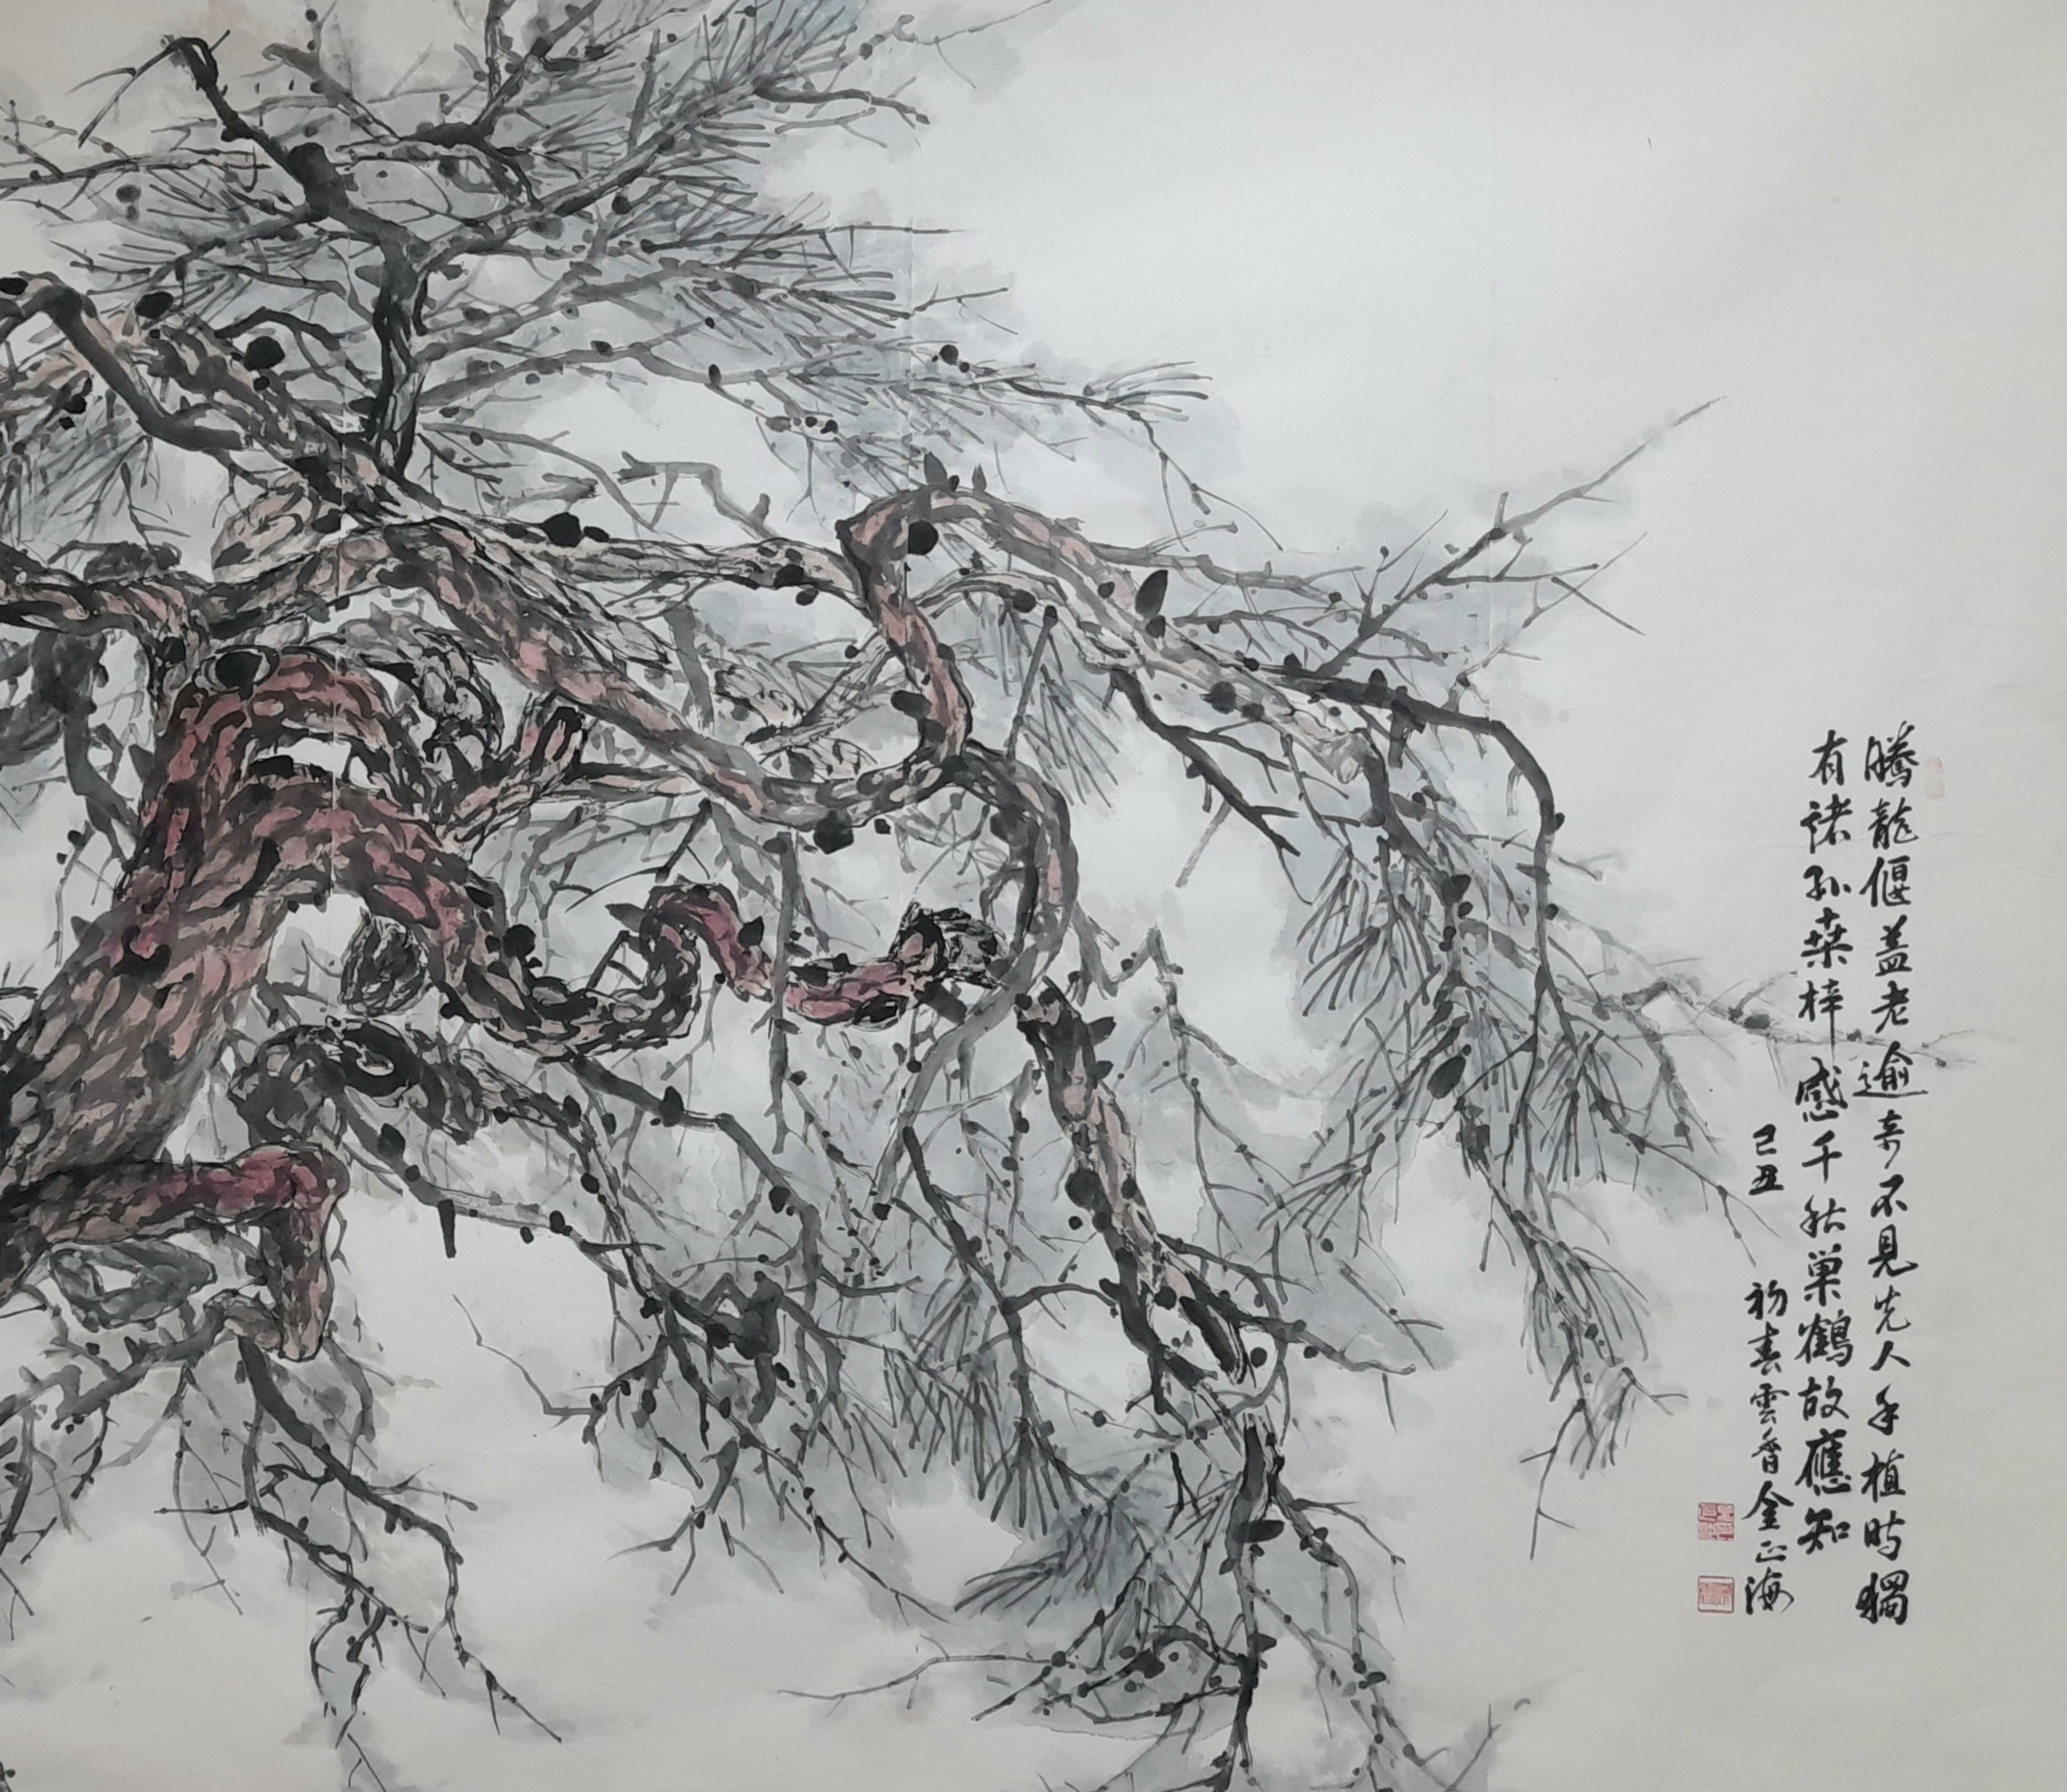 騰龍偃盖老逾奇不見先人手植時獨
有諸孫桒梓感千秋巢鶴故應知
己丑 初春雲香金正海